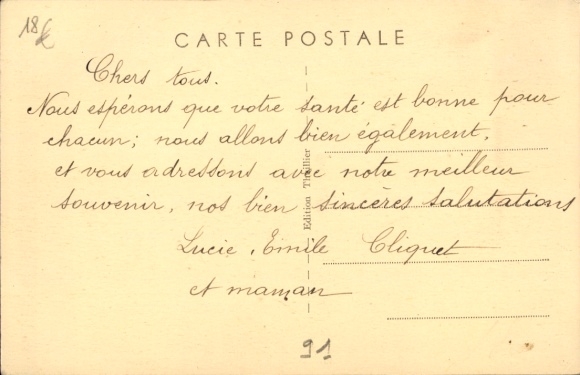 18€
CARTE POSTALE
Chers tous.
Nous espérons que votre santé est bonne pour
chacun; nous allons bien également,
et vous adressons avec notre meilleur
souvenir, nos bien sincères salutations
Lucie, Emile Cliquet
et maman
Edition Thuillier
91